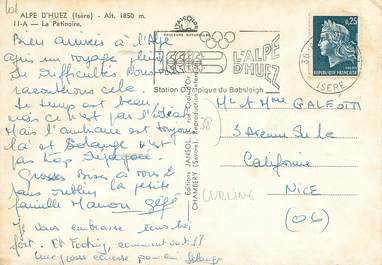 ALPE D'HUEZ (Isère) - Alt. 1850 m.
11-A — La Patinoire.
Bien arrivés à l'Alpe
après un voyage plein
de difficultés. Nous
raconterons cela.
Le temps est beau
mais ce n'est pas l'idéal
Mais l'ambiance est toujours
là et Solange n'est
pas trop
Grosses Bises à vous 2
sans oublier la petite
famille Manon Gégé
Je vous embrasse tous très
fort. Et Footing, comment va-t-il ??
Une grosse caresse pour lui Solange
L'ALPE
D'HUEZ
Station Olympique du Bobsleigh
0,25
REPUBLIQUE FRANÇAISE
ISERE
Editions JANSOL, rue Croix-d'Or
CHAMBERY (Savoie). Reproduction interdite
38
CURLING
Mr et Mme GALEOTTI
3 Avenue de la
Californie
NICE
(06)